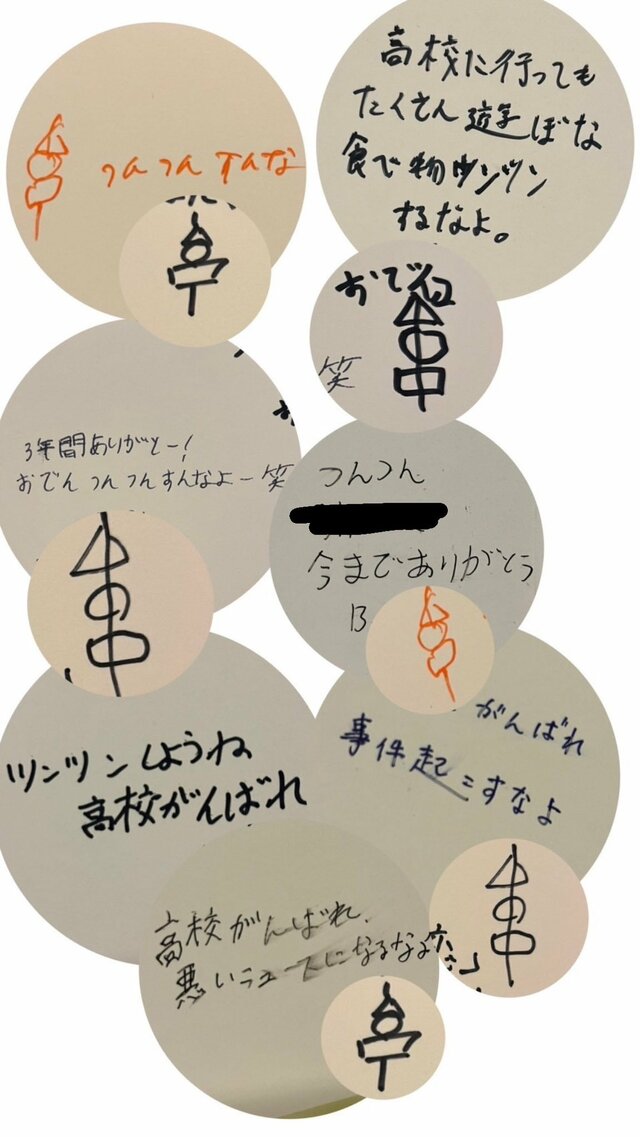 つんつん すんな
高校に行っても
たくさん遊ぼな
食で物ツンツン
するなよ。
おでん
笑
3年間ありがとー!
おでんつんつんすんなよー笑
つんつん
今までありがとう
13
ツンツンしようね
高校がんばれ
がんばれ
事件起こすなよ
高校がんばれ、
悪いニュースになるなよ